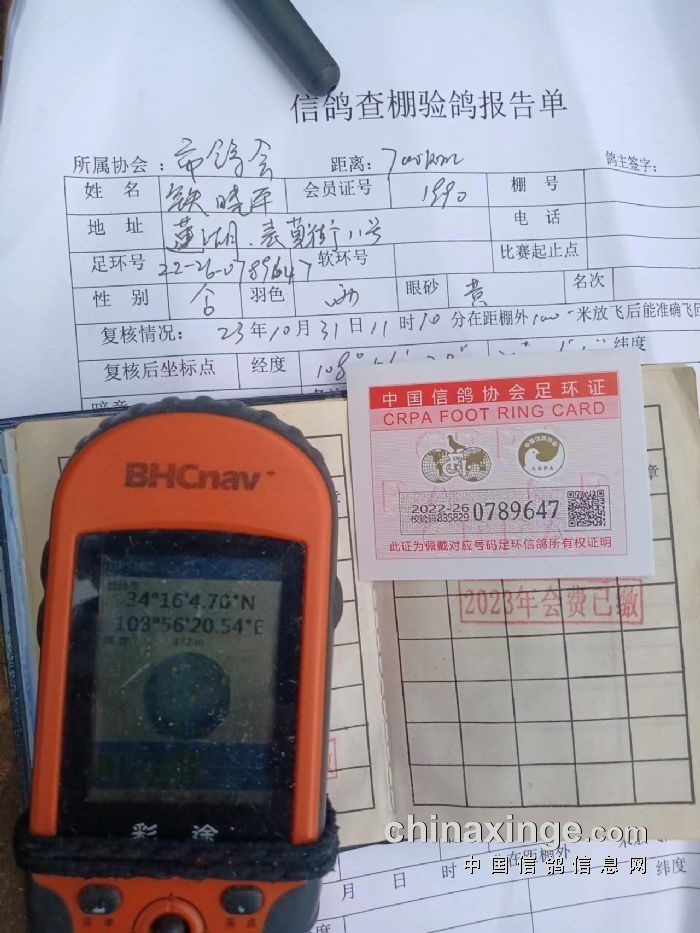 信鸽查棚验鸽报告单
所属协会： 市鸽会 距离： 鸽主签字：
姓 名 铁晓平 会员证号 1990 棚 号
地 址 莲湖 街八号 电 话
足环号 22-26-0789647 软环号 比赛起止点
性 别 羽色 眼砂 黄 名次
复核情况： 23年10月31日11时10分在距棚外1000米放飞后能准确飞回
复核后坐标点 经度 纬度
中国信鸽协会足环证
CRPA FOOT RING CARD
CRPA
2022-26
校验码835829
0789647
此证为佩戴对应号码足环信鸽所有权证明
2023年会费已缴
BHCnav
34°16'4.70"N
108°56'20.54"E
彩途
菜单
chinaxinge.com
中国信鸽信息网
月 日 时 在距棚外
纬度